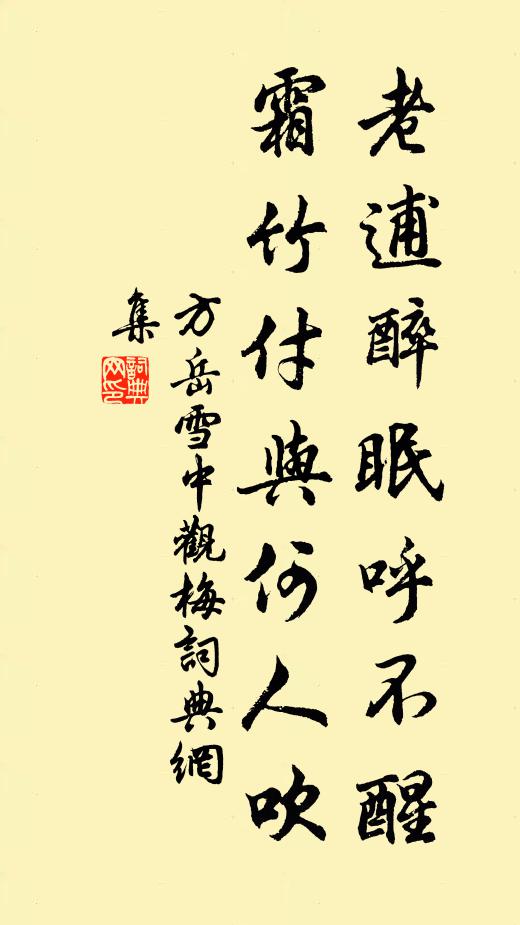 老逋醉眠呼不醒
霜竹付與何人吹
方岳雪中觀梅詞典網
集
詞典
网印